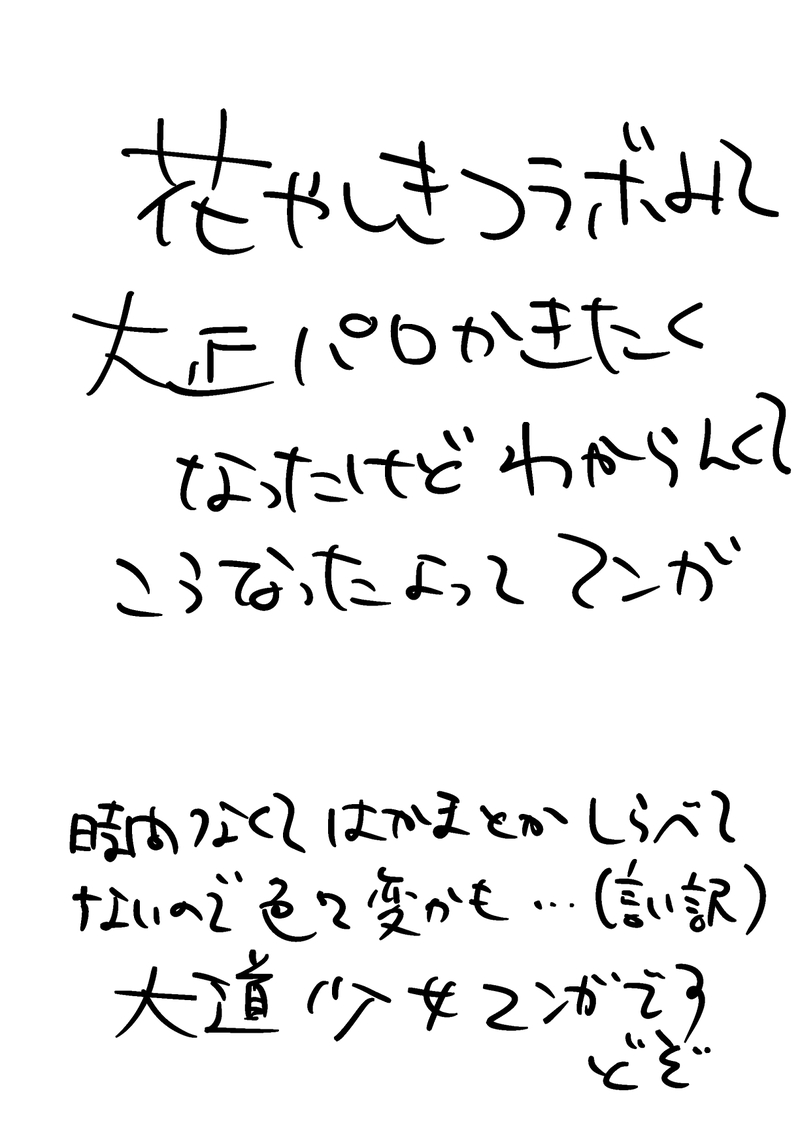 花やしきコラボみて
大正パロかきたく
なったけどわからんくて
こうなったよって マンガ
時間なくて はかまとか しらべて
ないので 色々変かも…(言い訳)
大道少女マンガです
どぞ